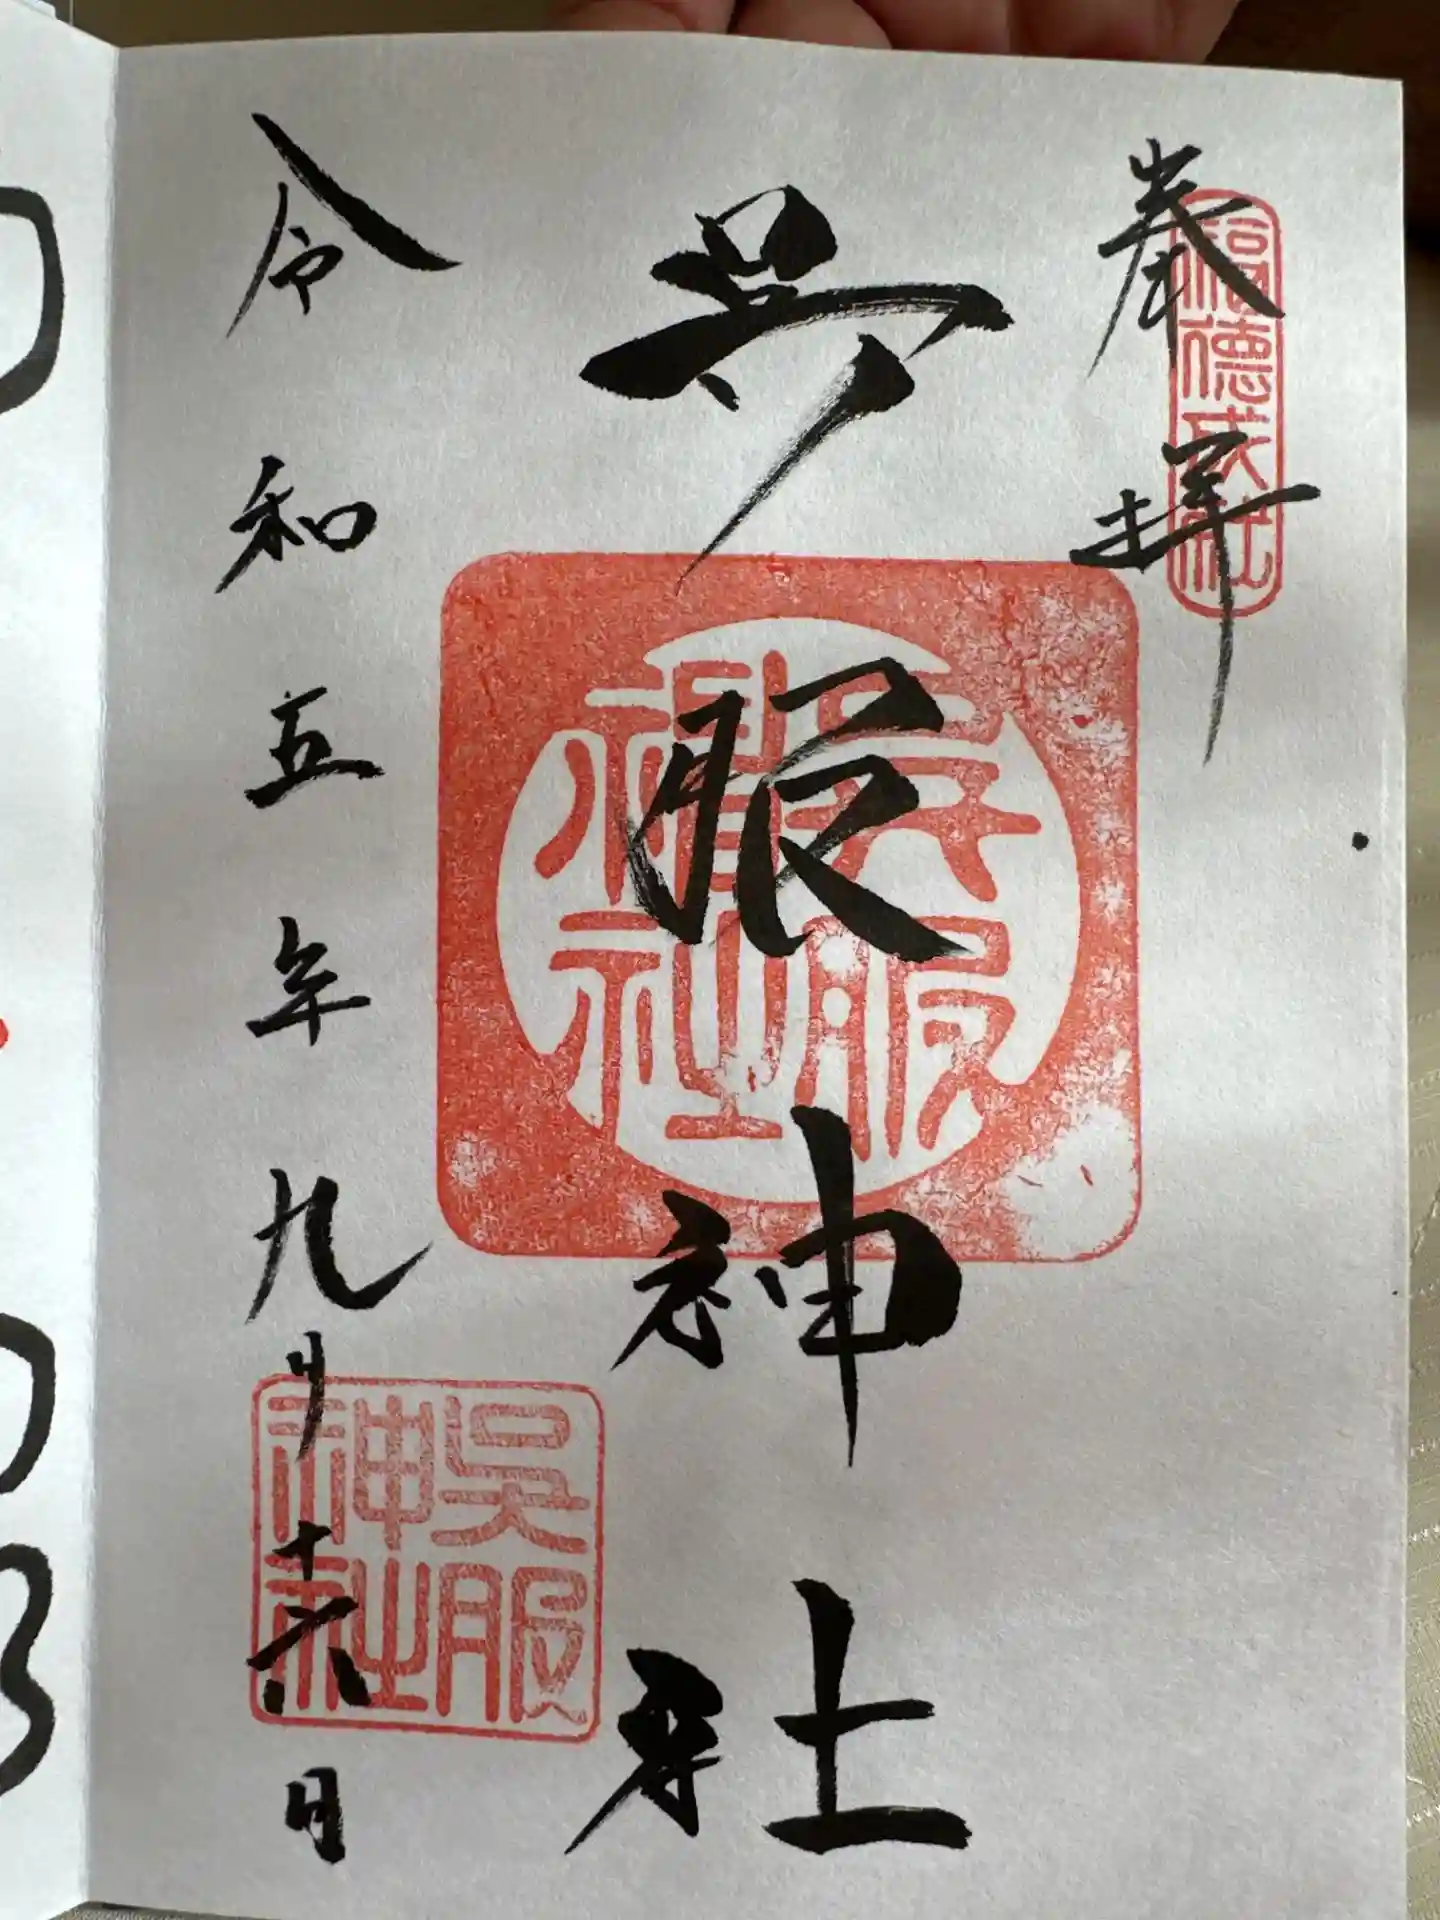 奉拝
福德戎社
呉服神社
呉服神社
令和五年九月十六日
呉服神社